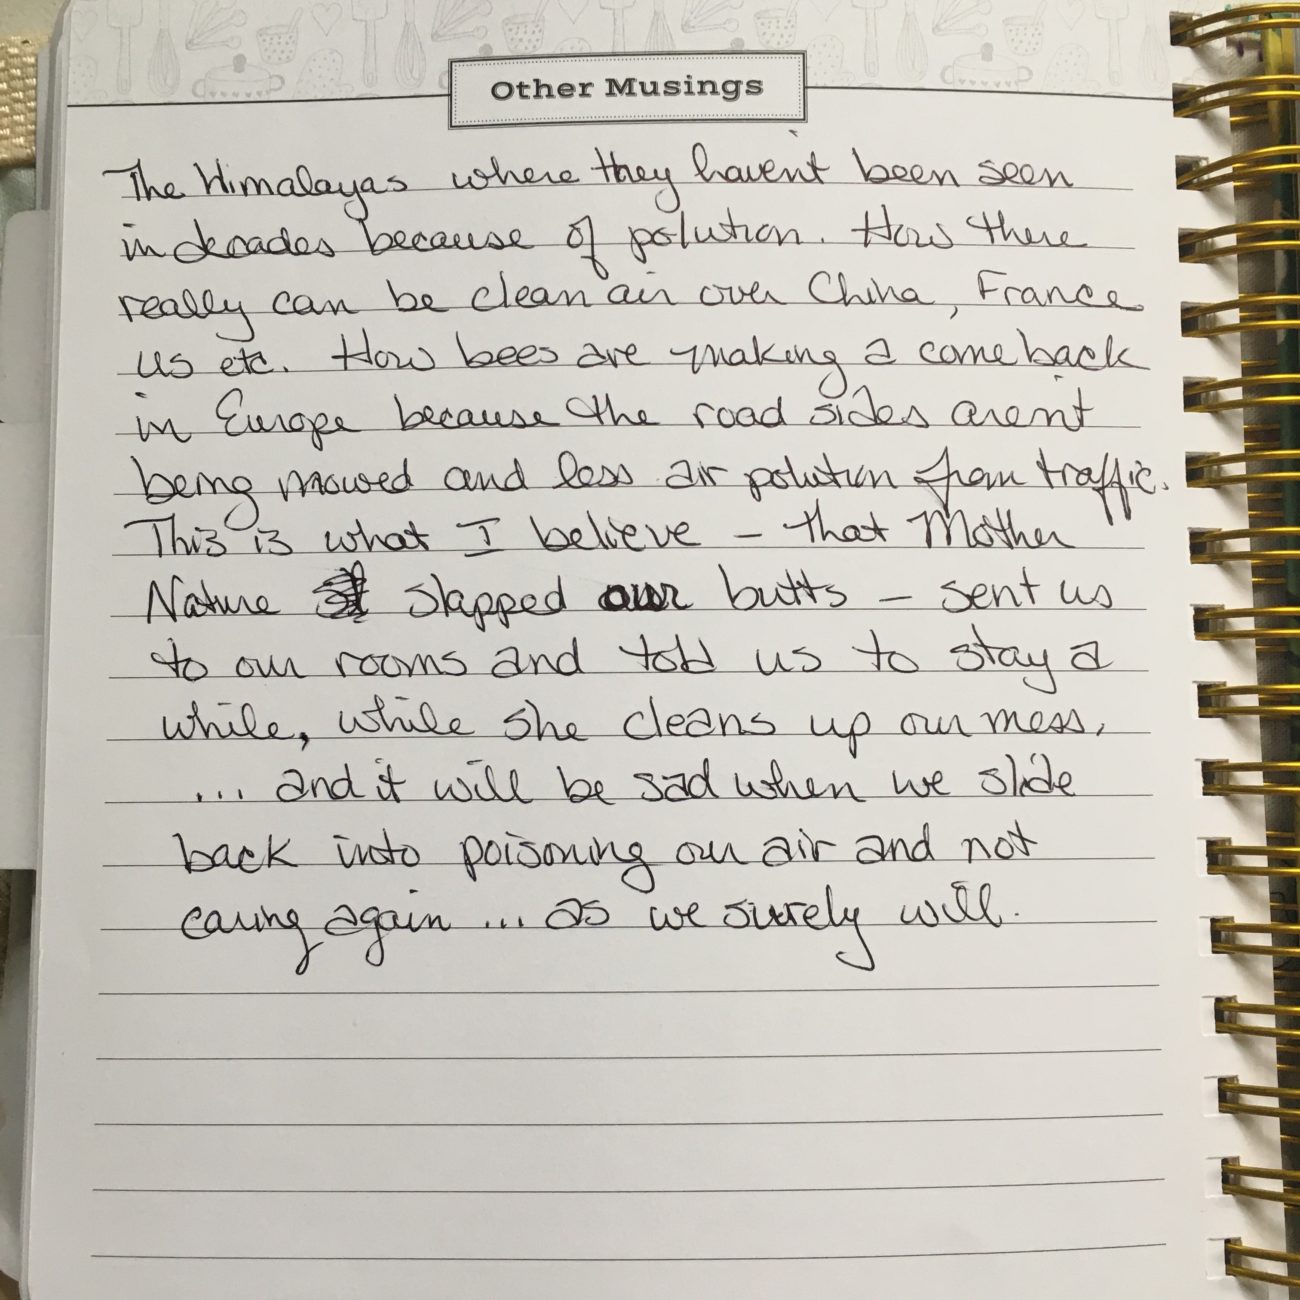 Other Musings
The Himalayas where they haven't been seen
in decades because of polution. How there
really can be clean air over China, France
us etc. How bees are making a come back
in Europe because the road sides aren't
being mowed and less air polution from traffic.
This is what I believe – that Mother
Nature slapped our butts – sent us
to our rooms and told us to stay a
while, while she cleans up our mess,
... and it will be sad when we slide
back into poisoning our air and not
caring again ... as we surely will.